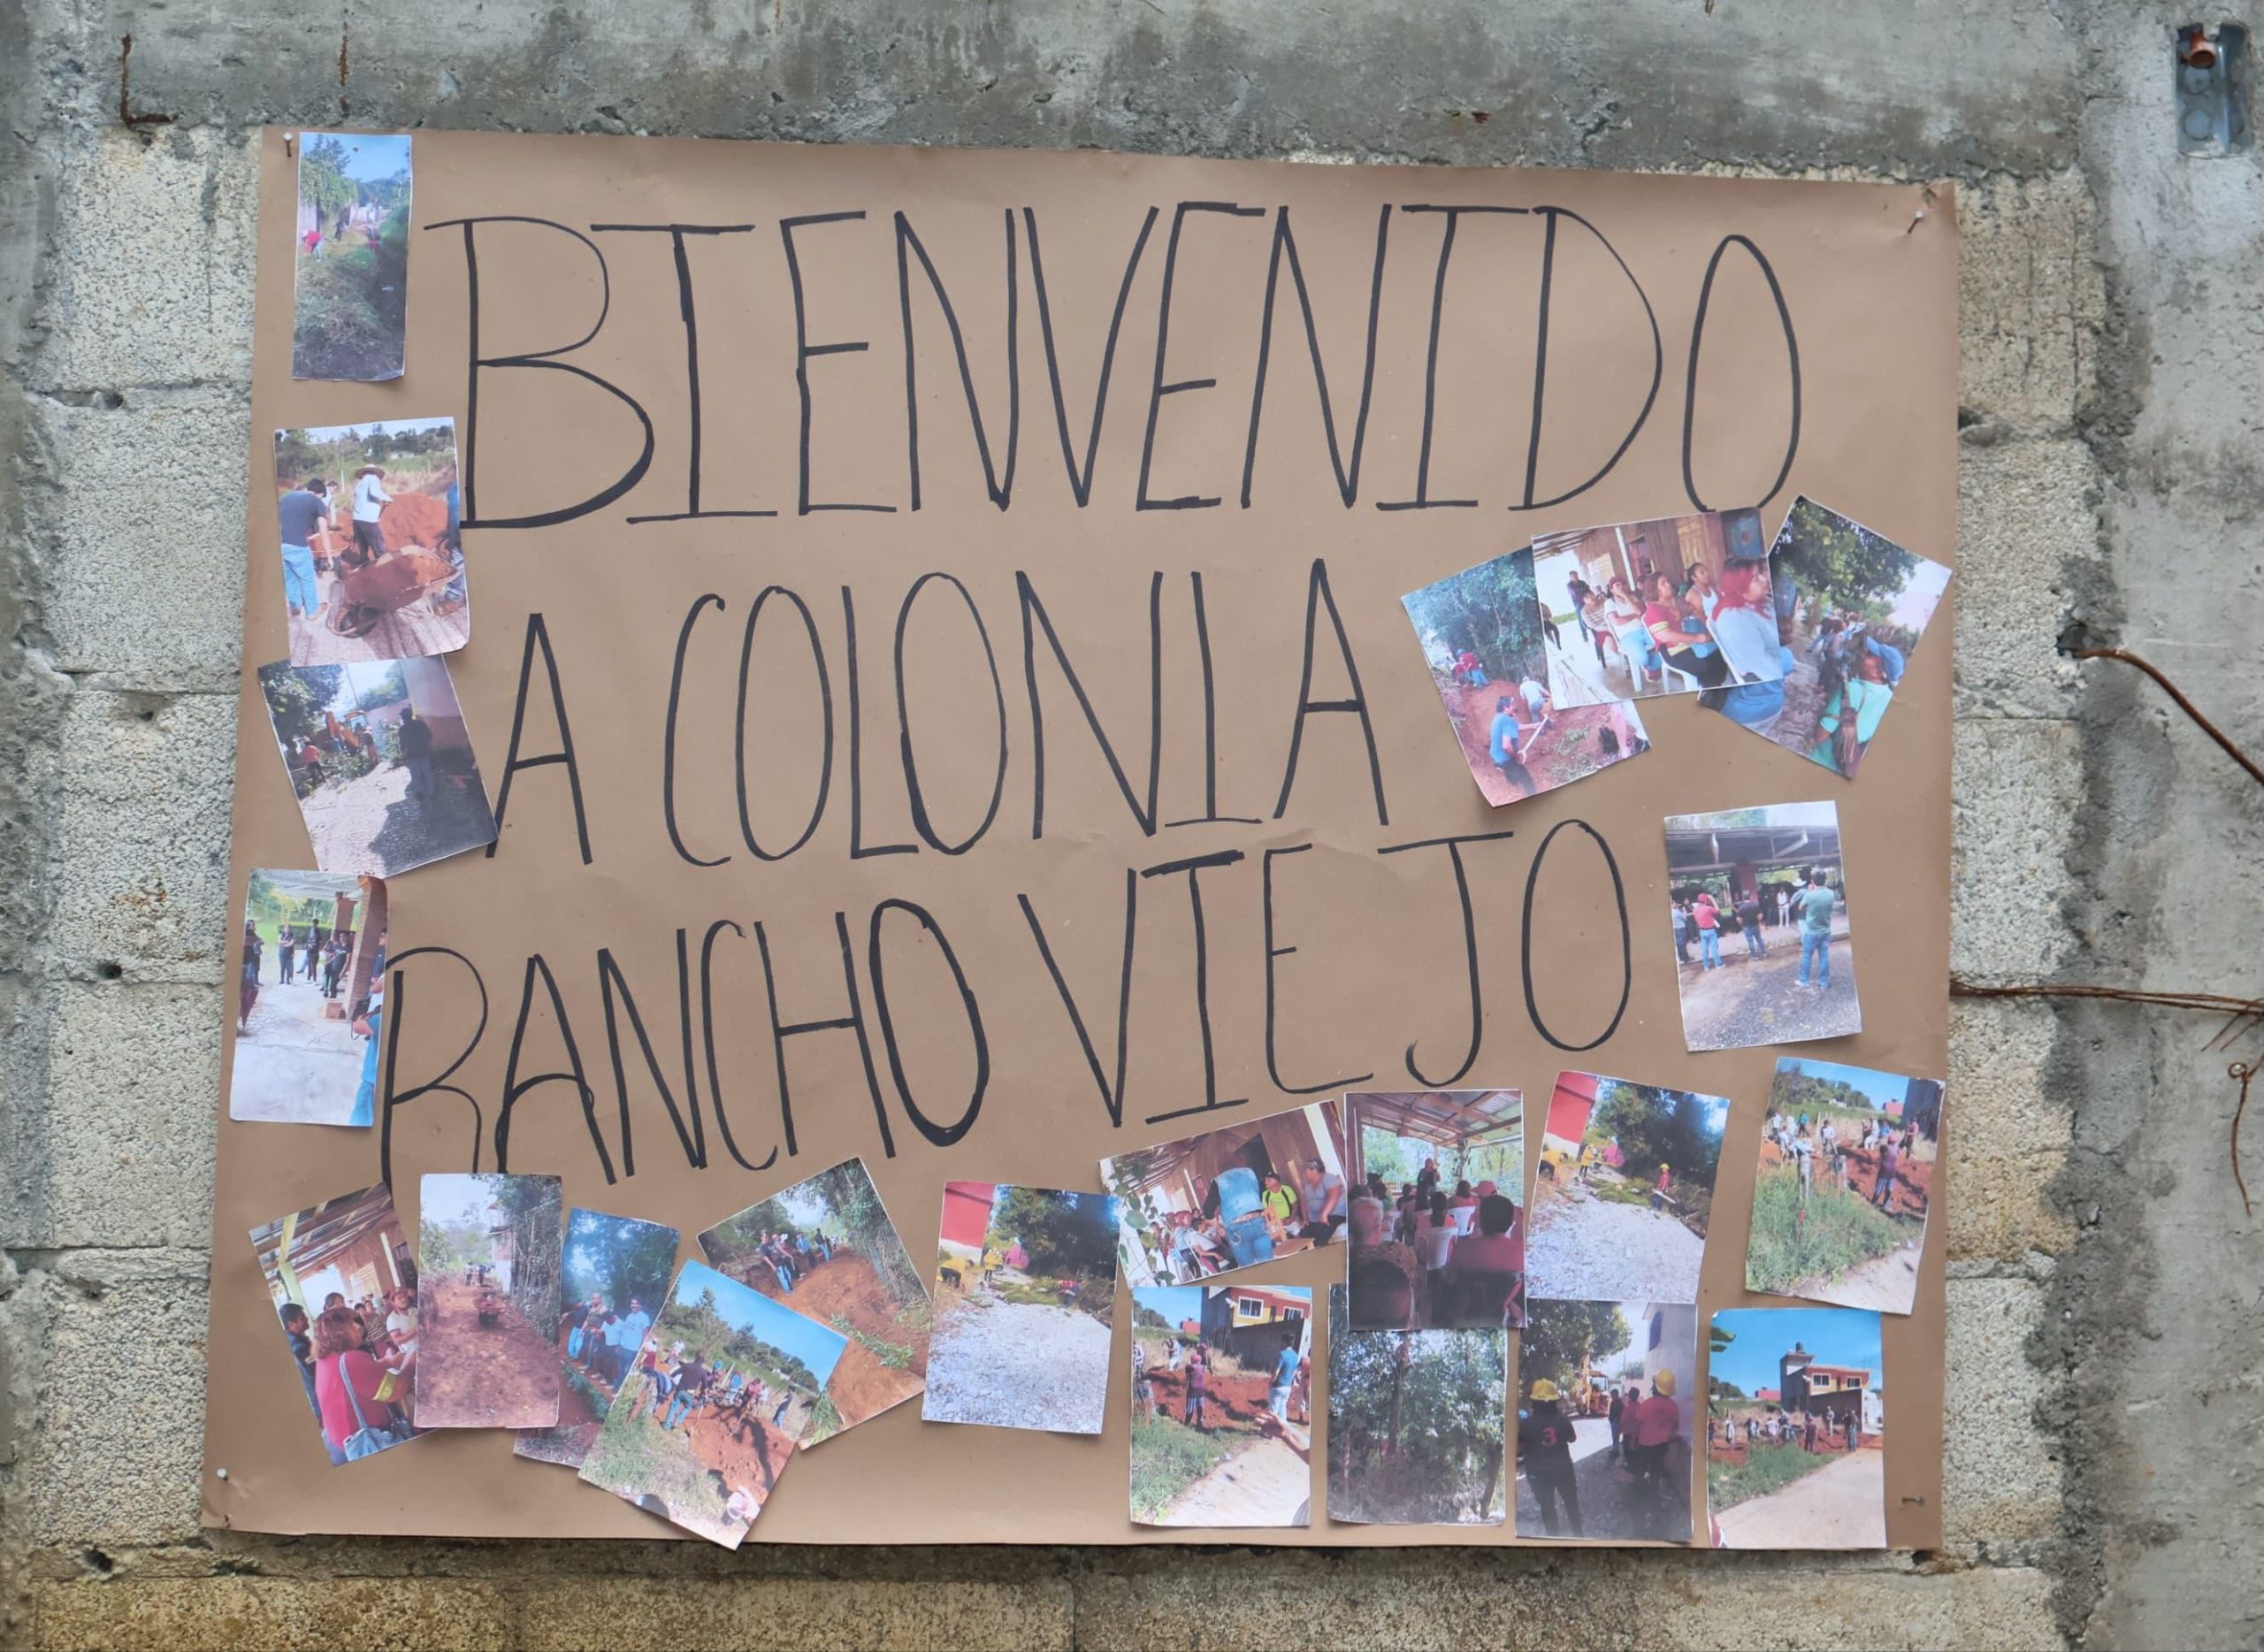 BIENVENIDO
A COLONIA
RANCHO VIEJO
3